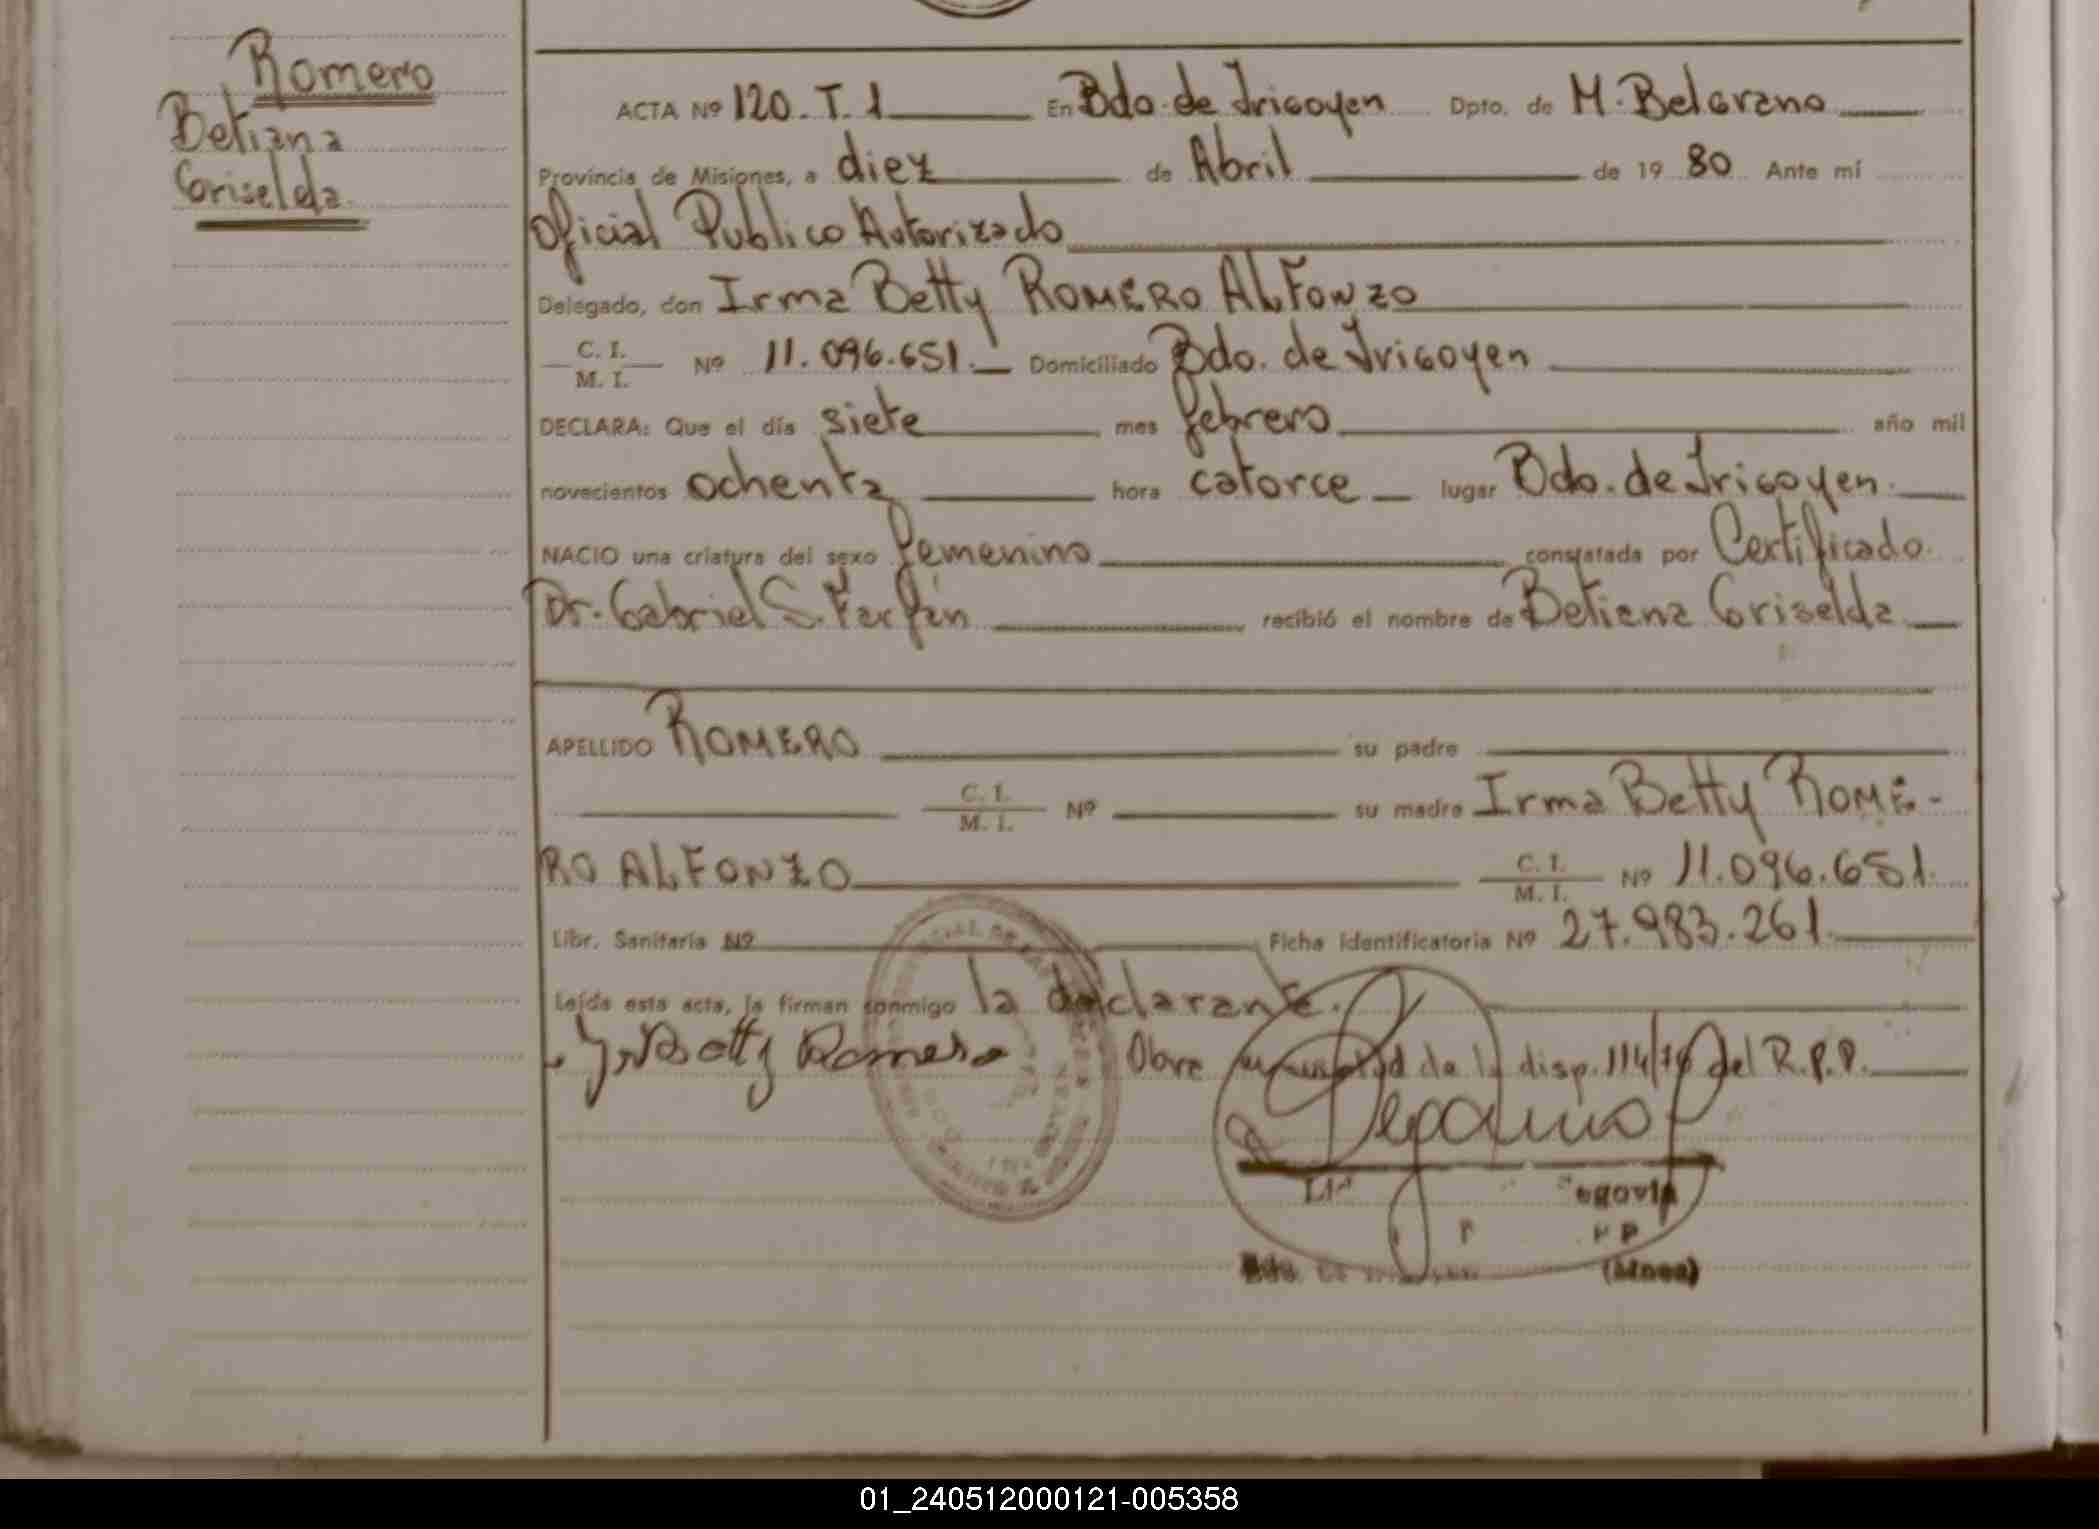 Romero
Betiana
Griselda.
ACTA Nº 120. T. 1 En Bdo. de Irigoyen Dpto. de M. Belgrano
Provincia de Misiones, a diez de Abril de 19 80 Ante mí
Oficial Publico Autorizado
Delegado, don Irma Betty ROMERO ALFONZO
C. I.
M. I. Nº 11.096.651. Domiciliado Bdo. de Irigoyen
DECLARA: Que el día siete mes febrero año mil
novecientos ochenta hora catorce lugar Bdo. de Irigoyen.
NACIO una criatura del sexo femenino constatada por Certificado
Dr. Gabriel S. Farfán recibió el nombre de Betiana Griselda
APELLIDO ROMERO su padre
C. I.
M. I. Nº su madre Irma Betty ROME-
RO ALFONZO C. I.
M. I. Nº 11.096.651.
Libr. Sanitaria Nº Ficha identificatoria Nº 27.983.261.
Leída esta acta, la firman conmigo la declarante.
Betty Romero Obra de la disp. 114/ del R.P.P.
egovia
(Mnes)
01_240512000121-005358